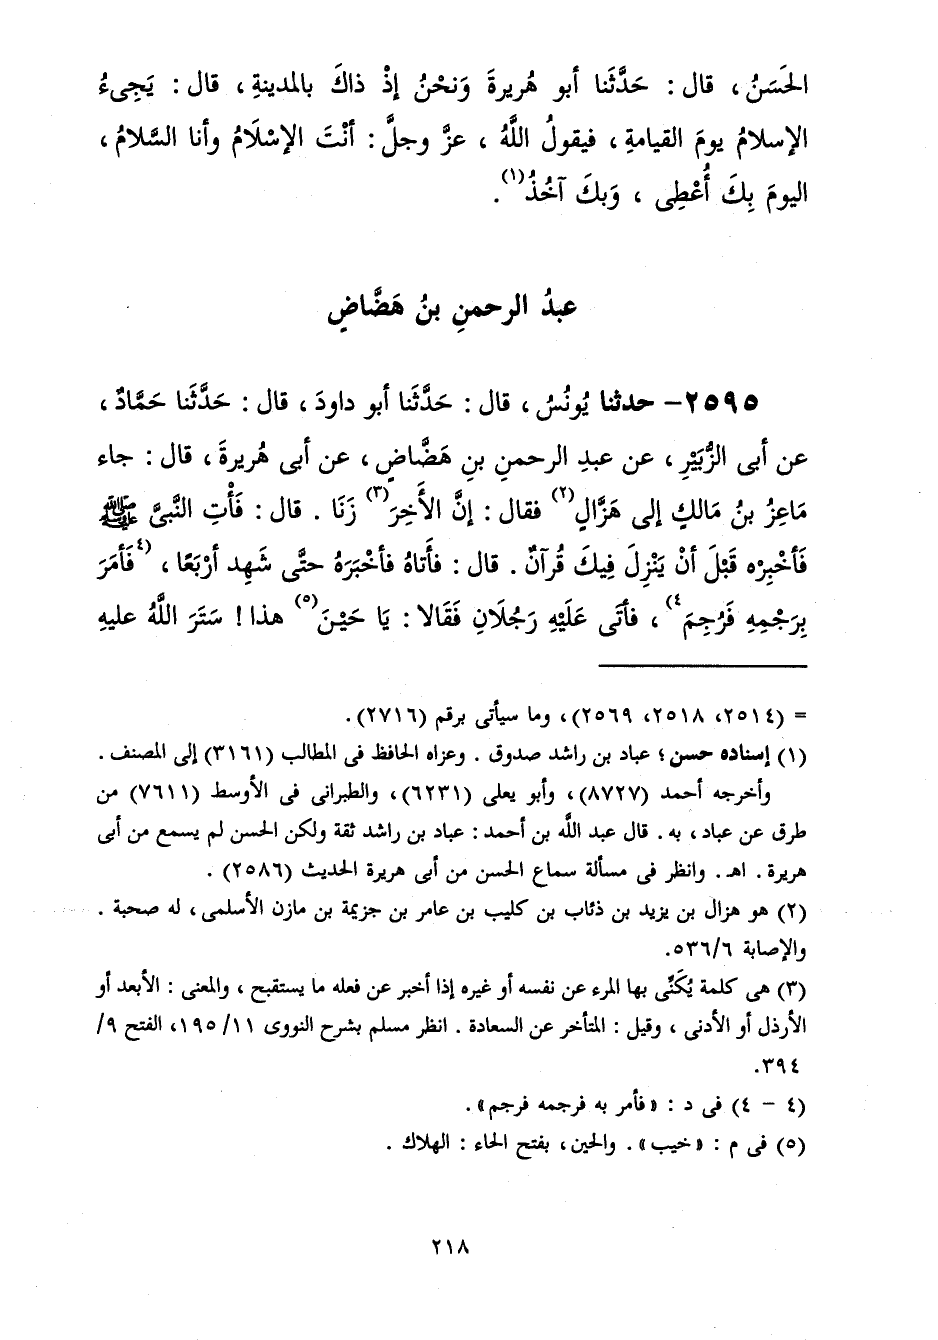 الحَسَنُ ، قال : حَدَّثَنا أبو هُريرةَ وَنحْنُ إذْ ذاكَ بالمدينةِ ، قال : يَجِىءُ
الإسلامُ يومَ القيامةِ ، فيقولُ اللَّهُ ، عزَّ وجلَّ : أنْتَ الإسْلَامُ وأنا السَّلامُ ،
اليومَ بِكَ أُعْطِى ، وَبكَ آخُذُ(١) .
عبدُ الرحمنِ بنُ هَضَّاضٍ
٢٥٩٥- حدثنا يُونُسُ ، قال : حَدَّثَنا أبو داودَ ، قال : حَدَّثَنا حَمَّادٌ ،
عن أبى الزُّبَيْرِ ، عن عبدِ الرحمنِ بنِ هَضَّاضٍ ، عن أبى هُريرةَ ، قال : جاء
مَاعِزُ بنُ مَالكٍ إلى هَزَّالٍ(٢) فقال : إنَّ الأَخِرَ(٣) زَنَا . قال : فَأْتِ النَّبىَّ ﷺ
فَأخْبِرْه قَبْلَ أنْ يَنْزِلَ فِيكَ قُرآنٌ . قال : فأَتاهُ فأخْبَرَهُ حتَّى شَهِد أرْبَعًا ، (٤فَأمَرَ
بِرَجْمِهِ فَرُجِمَ٤) ، فأتَى عَلَيْهِ رَجُلَانِ فَقَالا : يَا حَيْنَ(٥) هذا ! سَتَرَ اللَّهُ عليهِ
= (٢٥١٤، ٢٥١٨، ٢٥٦٩)، وما سيأتى برقم (٢٧١٦).
(١) إسناده حسن ؛ عباد بن راشد صدوق . وعزاه الحافظ فى المطالب (٣١٦١) إلى المصنف .
وأخرجه أحمد (٨٧٢٧)، وأبو يعلى (٦٢٣١)، والطبرانى فى الأوسط (٧٦١١) من
طرق عن عباد ، به . قال عبد اللَّه بن أحمد : عباد بن راشد ثقة ولكن الحسن لم يسمع من أبى
هريرة . اهـ . وانظر فى مسألة سماع الحسن من أبى هريرة الحديث (٢٥٨٦) .
(٢) هو هزال بن يزيد بن ذئاب بن كليب بن عامر بن جزيمة بن مازن الأسلمى ، له صحبة .
والإصابة ٦/ ٥٣٦.
(٣) هى كلمة يُكَنَّى بها المرء عن نفسه أو غيره إذا أخبر عن فعله ما يستقبح ، والمعنى : الأبعد أو
الأرذل أو الأدنى ، وقيل : المتأخر عن السعادة . انظر مسلم بشرح النووى ١١/ ١٩٥، الفتح ٩/
٣٩٤.
(٤ – ٤) فى د : « فأمر به فرجمه فرجم » .
(٥) فى م : « خيب » . والحين ، بفتح الحاء : الهلاك .
٢١٨